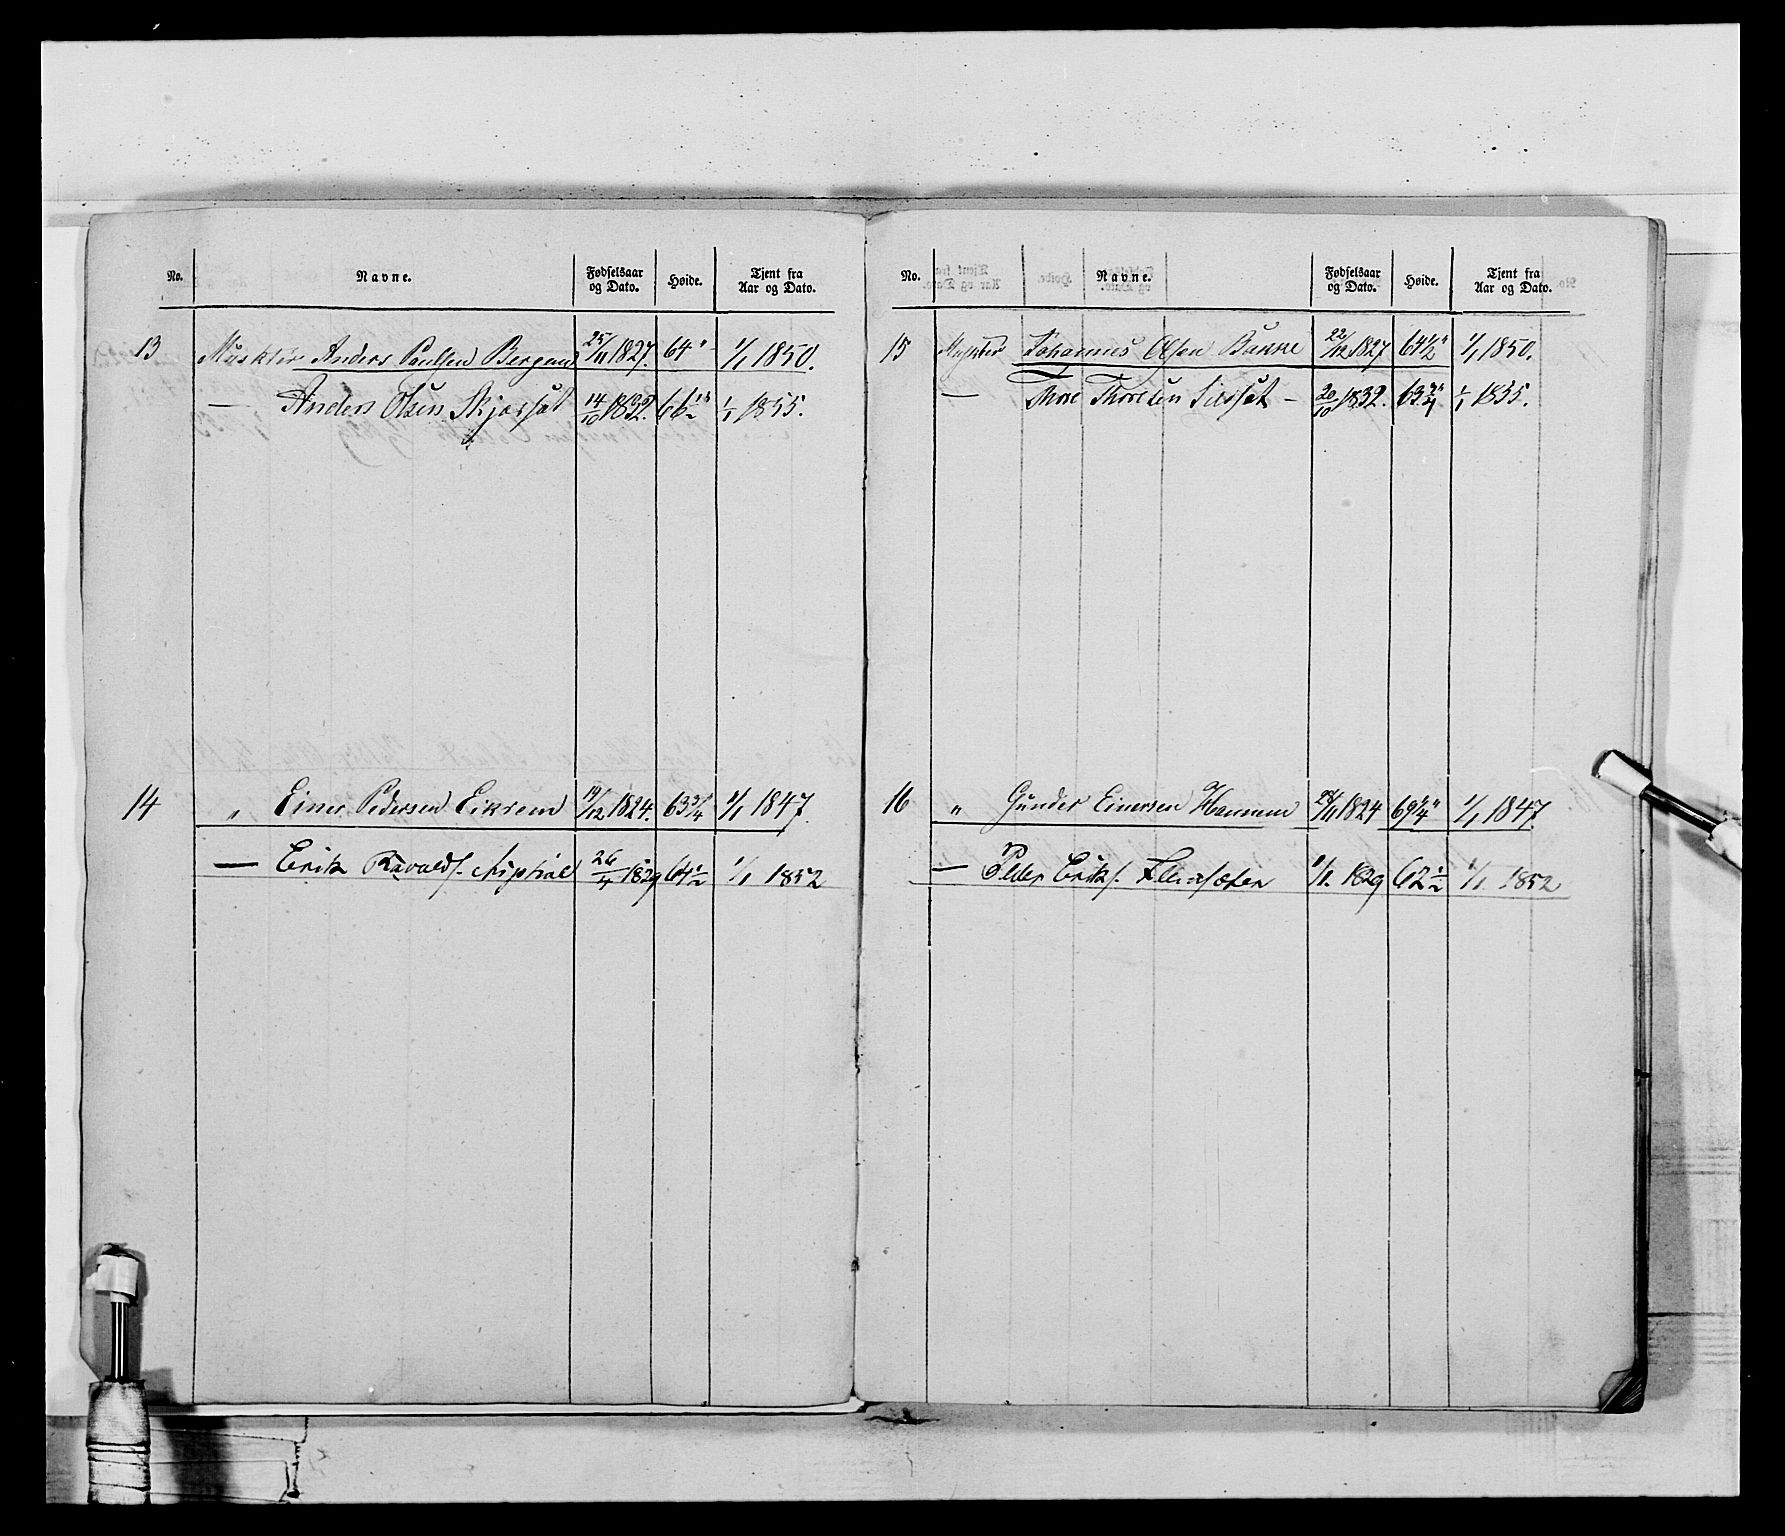 No. Navne. Fødselsaar og Dato. Høide. Tjent fra Aar og Dato.
13 Muskter Anders Paulsen 25/11 1827. 64" 1/1 1850.
— Anders Olsen 14/10 1832. 66 1/2" 1/1 1855.
14 " Einer Pedersen Eikrem 19/12 1824. 63 3/4" 1/1 1847.
— Erik 26/4 1829 64 1/2 1/1 1852
No. Navne. Fødselsaar og Dato. Høide. Tjent fra Aar og Dato.
15 Muskter Johannes Olsen Bakke 22/12 1827 64 1/2" 1/1 1850.
— Thore Thoresen 20/10 1832. 63 3/4" 1/1 1855.
16 " Gunder Einersen Hammen 28/11 1824 69 1/4" 1/1 1847.
— Peder Eriks. 1/1. 1829 62 1/2 1/1. 1852